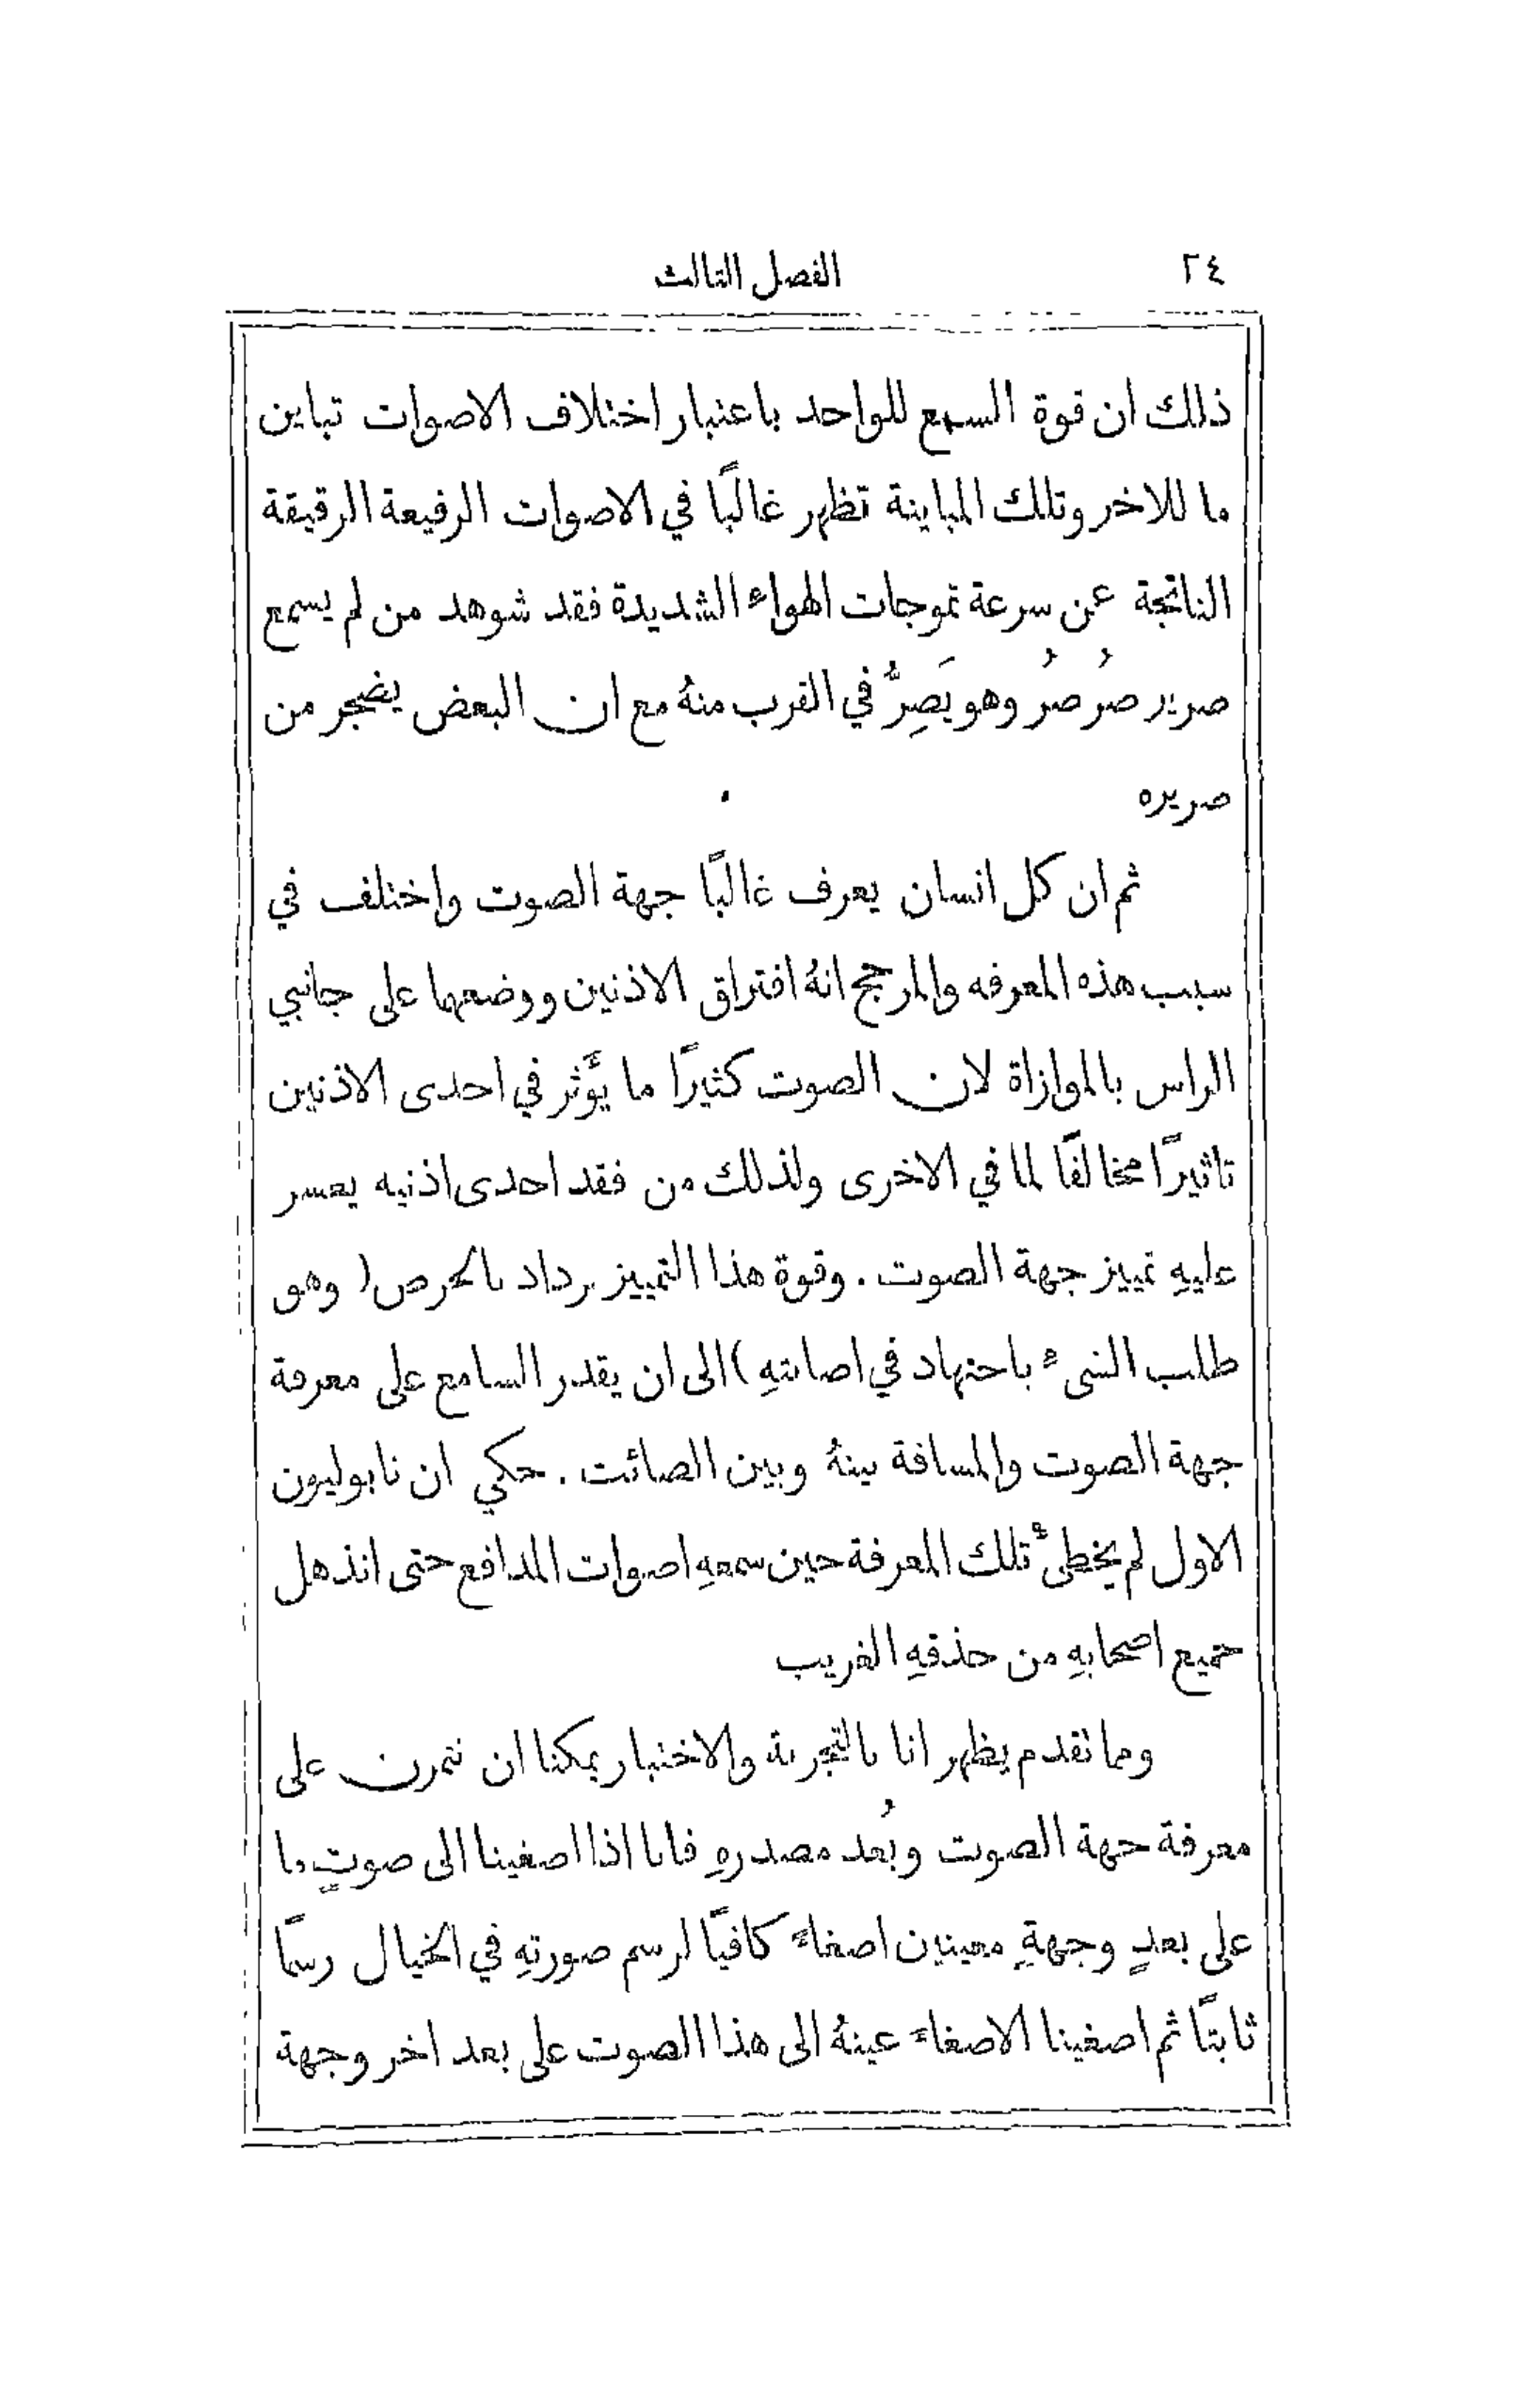 ٢٤ الفصل الثالث
ذلك ان قوة السمع للواحد باعتبار اختلاف الاصوات تباين
ما للاخر وتلك المباينة تظهر غالبًا في الاصوات الرفيعة الرقيقة
الناتجة عن سرعة تموجات الهواء الشديدة فقد شوهد من لم يسمع
صرير صُرصُر وهو يَصِرُّ في القرب منهُ مع ان البعض يضجر من
صريره
ثم ان كل انسان يعرف غالبًا جهة الصوت واختلف في
سبب هذه المعرفه والمرجح انهُ افتراق الاذنين ووضعها على جانبي
الراس بالموازاة لان الصوت كثيرًا ما يؤَثر في احدى الاذنين
تاثيرًا مخالفًا لما في الاخرى ولذلك من فقد احدى اذنيه يعسر
عليهِ تمييز جهة الصوت. وقوة هذا التمييز يزداد بالحرص (وهو
طلب الشيء باجتهاد في اصابتهِ) الى ان يقدر السامع على معرفة
جهة الصوت والمسافة بينهُ وبين الصائت. حكي ان نابوليون
الاول لم يخطئ تلك المعرفة حين سمعهِ اصوات المدافع حتى انذهل
جميع اصحابهِ من حذقهِ الغريب
ومما تقدم يظهر انا بالتجربة والاختبار يمكنا ان نتمرن على
معرفة جهة الصوت وبُعد مصدرهِ فانا اذا اصغينا الى صوتٍ ما
على بعدٍ وجهةٍ معينين اصغاءً كافيًا لرسم صورتهِ في الخيال رسمًا
ثابتًا ثم اصغينا الاصغاءَ عينهُ الى هذا الصوت على بعد اخر وجهة